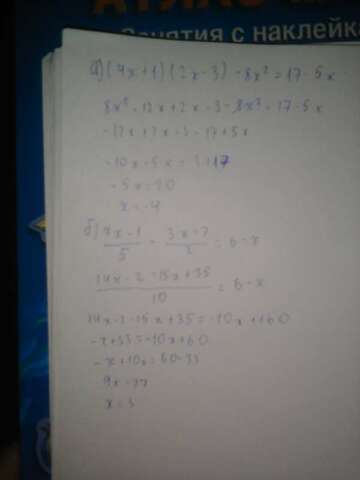 Занятия с наклейка
а) (4x+1)(2x-3) - 8x² = 17 - 5x
8x² - 12x + 2x - 3 - 8x² = 17 - 5x
-10x + 5x = 3+17
-5x = 20
x = -4
б) 7x-1/5 - 3x-7/2 = 6-x
14x-2-15x+35/10 = 6-x
14x-2-15x+35 = -10x+60
-x+33 = -10x+60
-x+10x = 60-33
9x = 27
x = 3